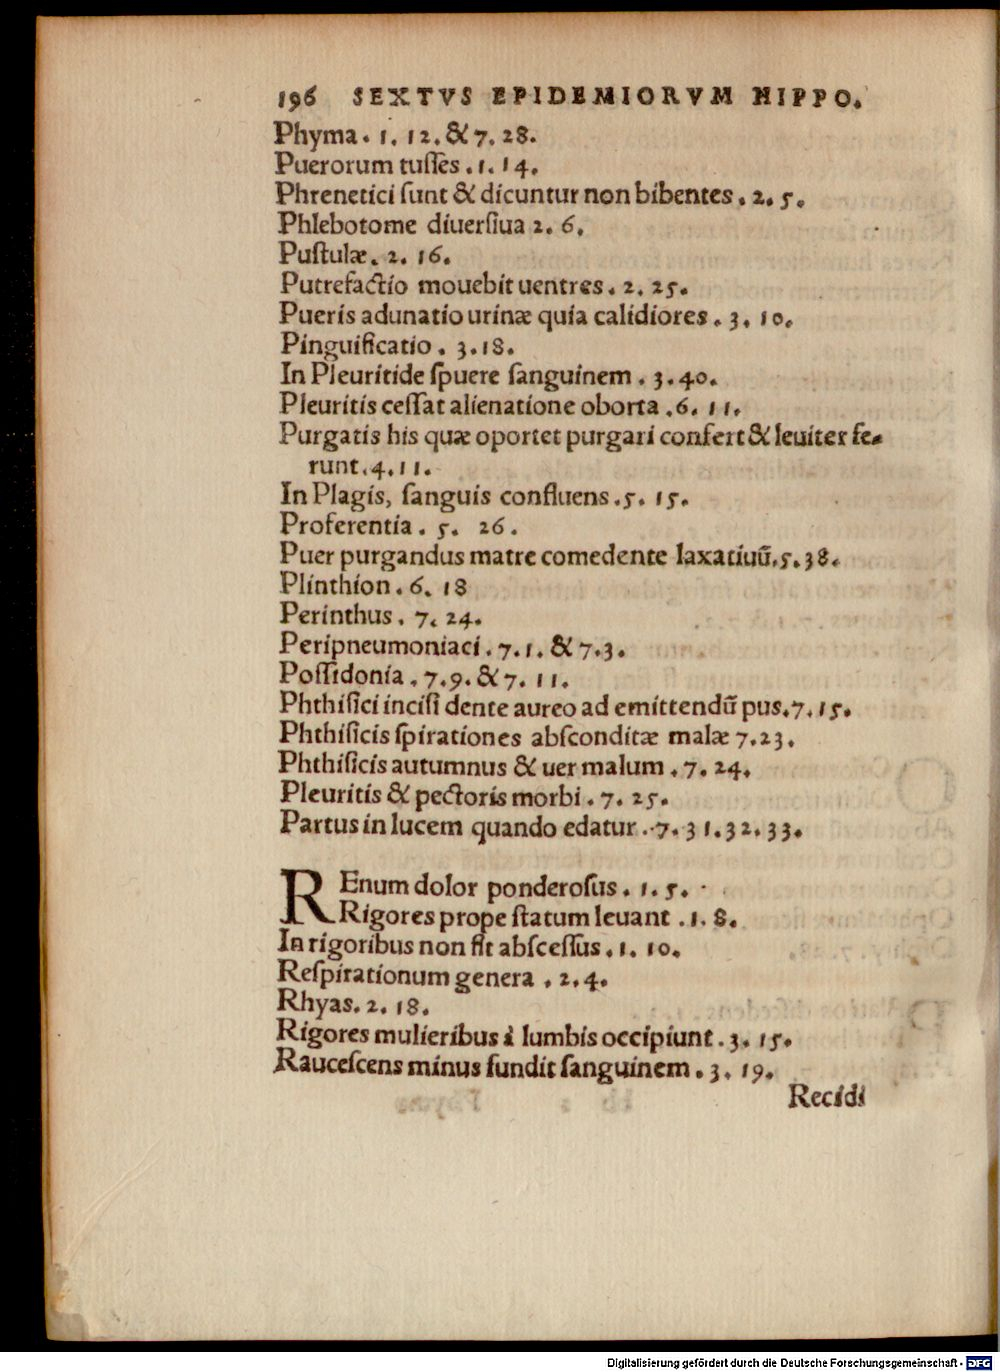 196 SEXTVS EPIDEMIORVM HIPPO.
Phyma. 1. 12. & 7. 28.
Puerorum tuſſes. 1. 14.
Phrenetici ſunt & dicuntur non bibentes. 2. 5.
Phlebotome diuerſiua 2. 6.
Puſtulæ. 2. 16.
Putrefactio mouebit uentres. 2. 25.
Pueris adunatio urinæ quia calidiores. 3. 10.
Pinguificatio. 3. 18.
In Pleuritide ſpuere ſanguinem. 3. 40.
Pleuritis ceſſat alienatione oborta. 6. 11.
Purgatis his quæ oportet purgari confert & leuiter fe-
runt. 4. 11.
In Plagis, ſanguis confluens. 5. 15.
Proferentia. 5. 26.
Puer purgandus matre comedente laxatiuũ. 5. 38.
Plinthion. 6. 18
Perinthus. 7. 24.
Peripneumoniaci. 7. 1. & 7. 3.
Poſſidonia. 7. 9. & 7. 11.
Phthiſici inciſi dente aureo ad emittendũ pus. 7. 15.
Phthiſicis ſpirationes abſconditæ malæ 7. 23.
Phthiſicis autumnus & uer malum. 7. 24.
Pleuritis & pectoris morbi. 7. 25.
Partus in lucem quando edatur. 7. 31. 32. 33.
REnum dolor ponderoſus. 1. 5.
Rigores prope ſtatum leuant. 1. 8.
In rigoribus non fit abſceſſus. 1. 10.
Reſpirationum genera. 2. 4.
Rhyas. 2. 18.
Rigores mulieribus à lumbis occipiunt. 3. 15.
Rauceſcens minus fundit ſanguinem. 3. 19.
Recidi
Digitalisierung gefördert durch die Deutsche Forschungsgemeinschaft - DFG